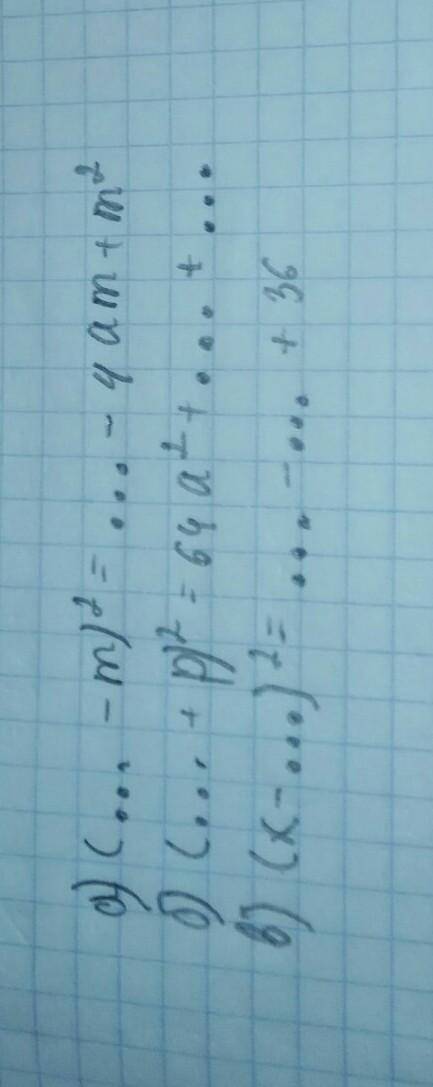 а) (... - m)² = ... - 4am + m²
б) (... + p)² = 64a² + ... + ...
в) (x - ...)² = ... - ... + 36